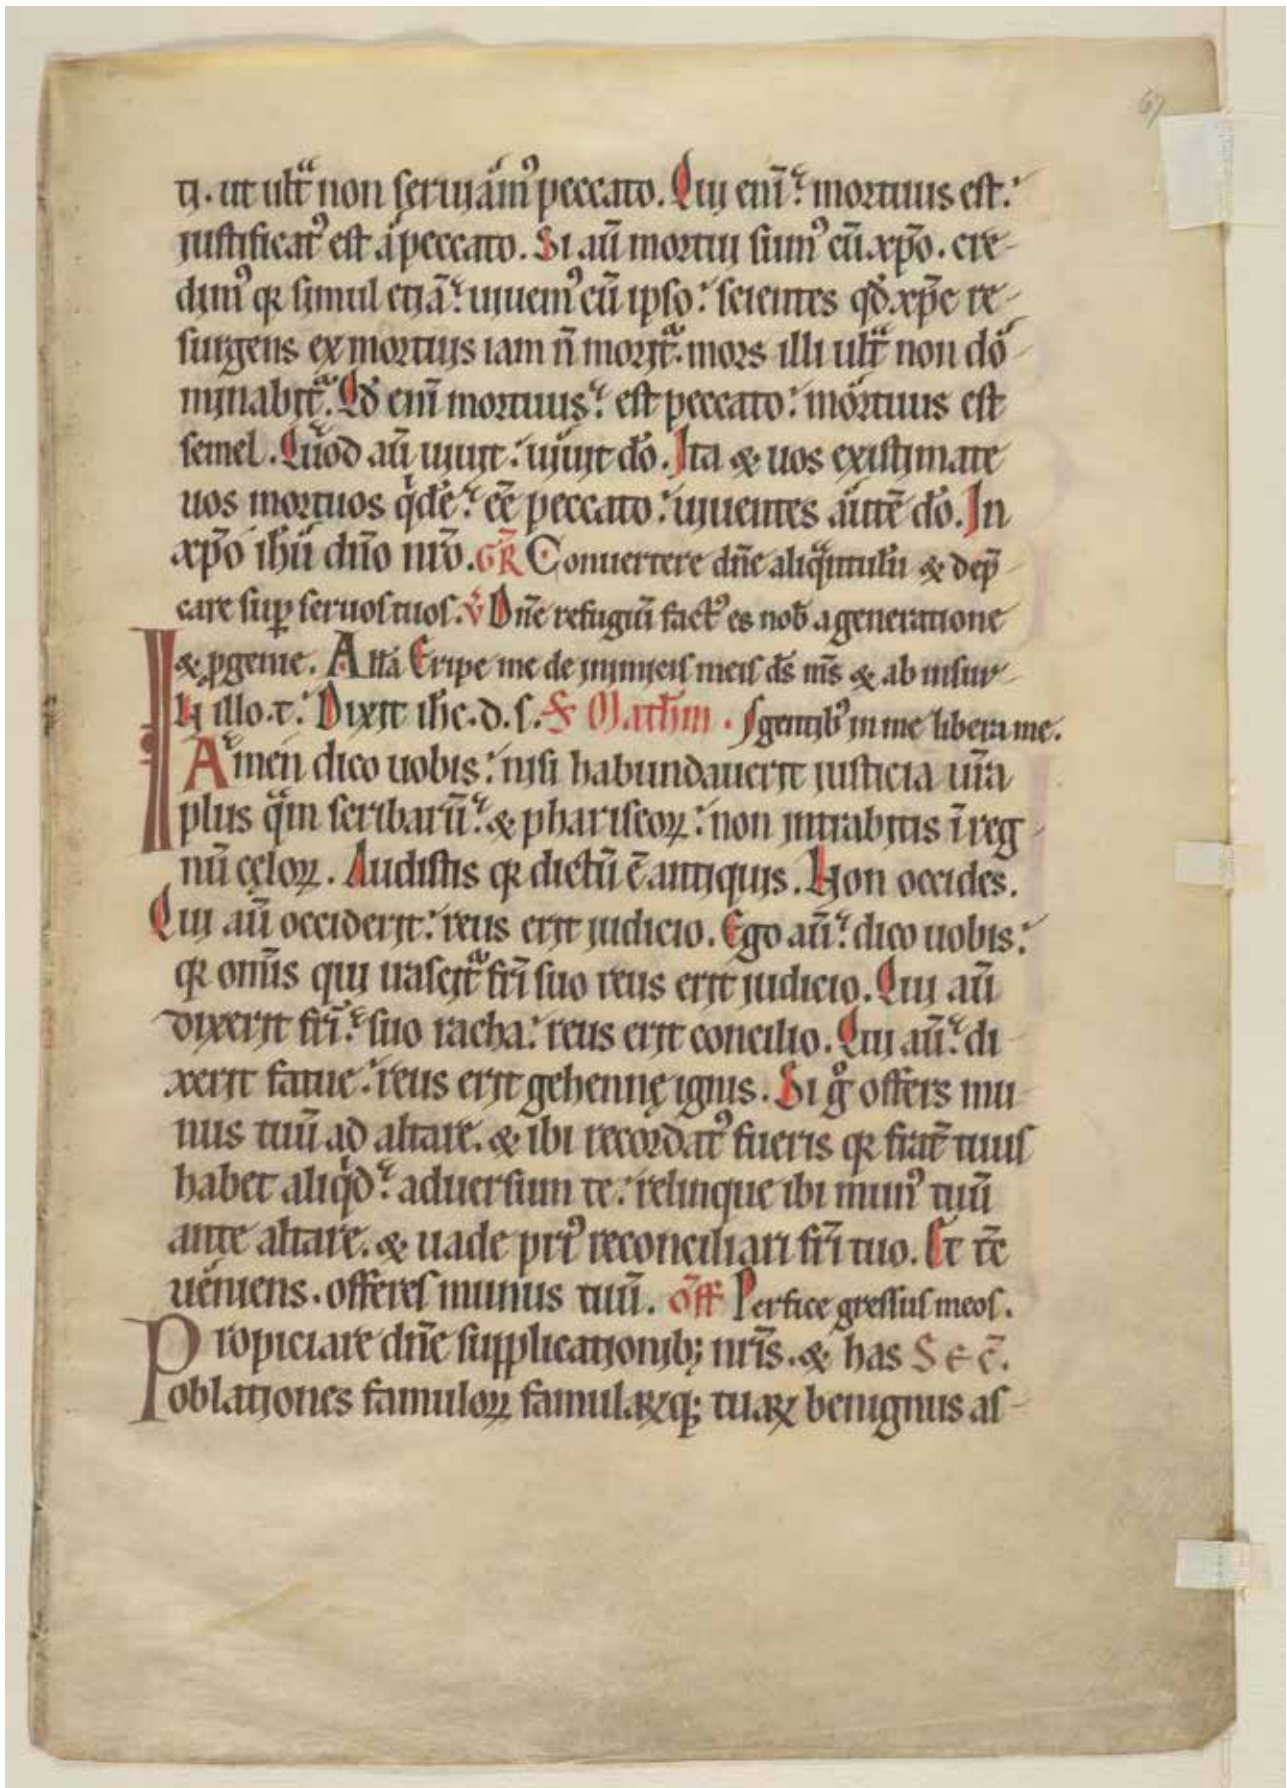 67
ti. ut ult̃ non seruiam᷒ peccato. Qui eni᷑ mortuus est:
iustificat᷒ est a peccato. Si aũ mortui sum᷒ cũ xp̃o. cre-
dim᷒ qꝛ simul etiã uiuem᷒ cũ ipso: scientes qđ xp̃c re-
surgens ex mortuis iam ñ morit᷑. mors illi ult̃ non do-
minabit᷑. Qđ eni᷑ mortuus est peccato: mortuus est
semel. Quod aũ uiuit: uiuit dõ. Ita & uos existimate
uos mortuos q̇dẽ eẽ peccato: uiuentes autẽ dõ. In
xp̃o ih̃u dño nr̃o. GR̃ Conuertere dñe aliq̃ntulũ & dep̃-
care sup̱ seruos tuos. v̇ Dñe refugiũ fact᷒ es nob̃ a generatione
& ꝓgenie. All̃a Eripe me de inimicis meis ds̃ ms̃ & ab insur-
N illo. t̃. Dixit ih̃c. d. s. S Math̃m. ſgentib᷒ in me libera me.
Amen dico uobis: nisi habundauerit iusticia ur̃a
plus q̃m scribarũ & phariseoꝝ: non intrabitis ĩ reg-
nũ cęloꝝ. Audistis qꝛ dictũ ẽ antiquis. Non occides.
Qui aũ occiderit: reus erit iudicio. Ego aũ dico uobis:
qꝛ omĩs qui irascit᷑ fr̃i suo reus erit iudicio. Qui aũ
dixerit fr̃i suo racha: reus erit concilio. Qui aũ di-
xerit fatue: reus erit gehennę ignis. Si g̊ offers mu-
nus tuũ ad altare. & ibi recordat᷒ fueris qꝛ frat̃ tuus
habet aliq̇d aduersum te: relinque ibi mun᷒ tuũ
ante altare. & uade pri᷒ reconciliari fr̃i tuo. Et tc̃
ueniens. offeres munus tuũ. off̃ Perfice gressus meos.
Propiciare dñe supplicationib; nr̃is. & has Sec̃.
oblationes famuloꝝ famulaꝝq; tuaꝝ benignus as-